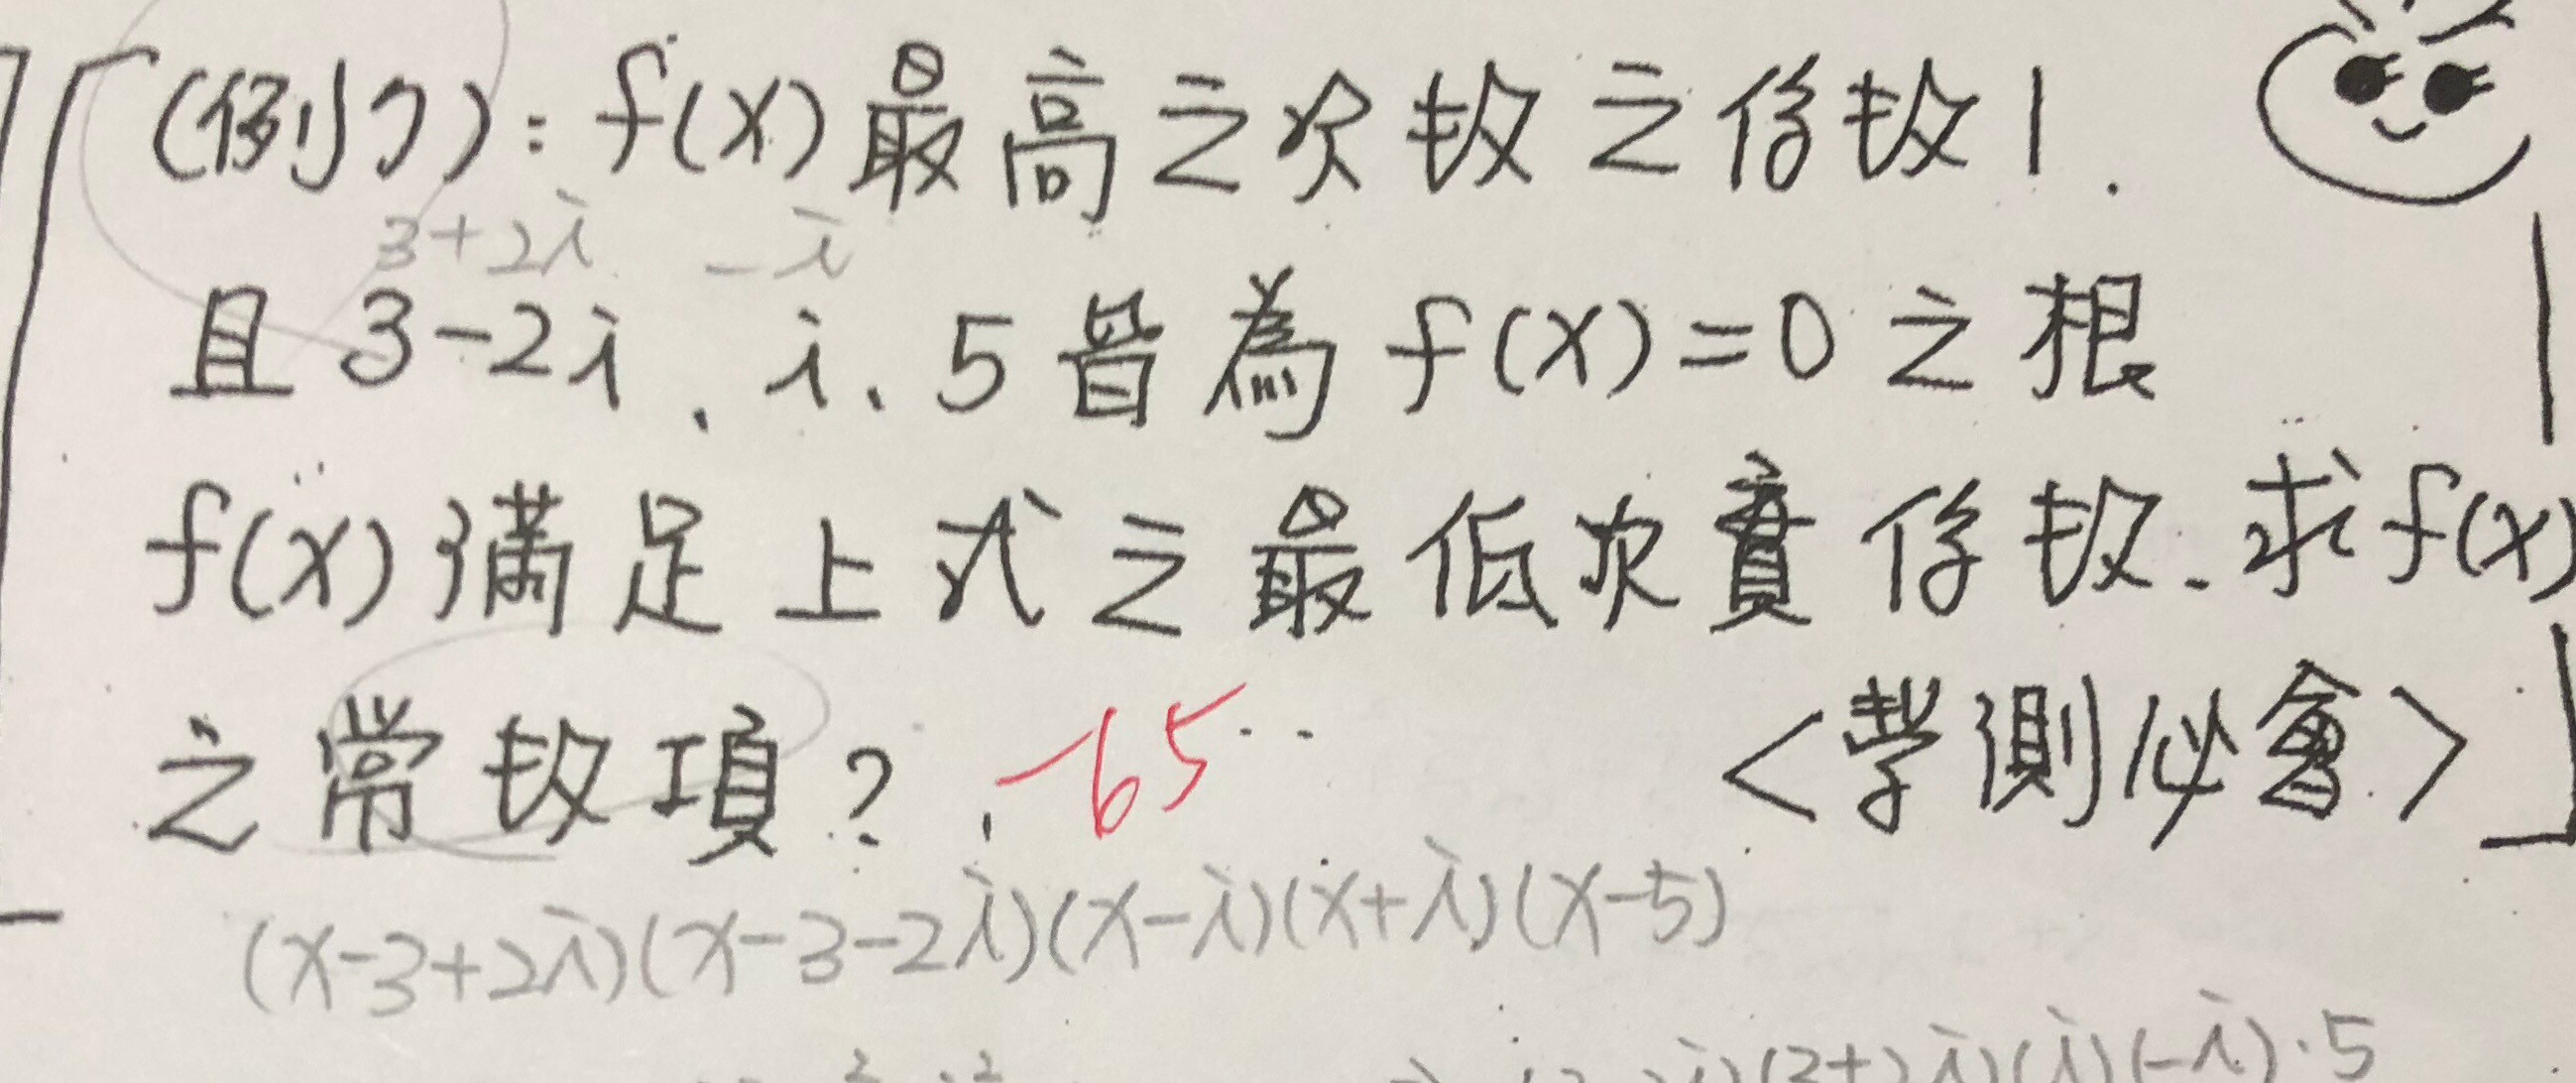 (例7):f(x)最高之次数之係数1.
3+2i -i
且 3-2i、i、5皆為 f(x)=0 之根
f(x)滿足上式之最低次實係数.求f(x)
之常数項?-65
<學測必會>
(x-3+2i)(x-3-2i)(x-i)(x+i)(x-5)
(3+2i)(i)(-i)·5